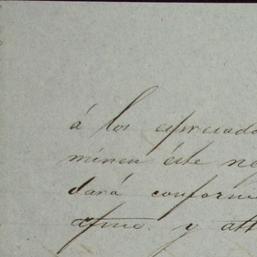 á los espresado
minen éste ne
dará conform
afmo. y att